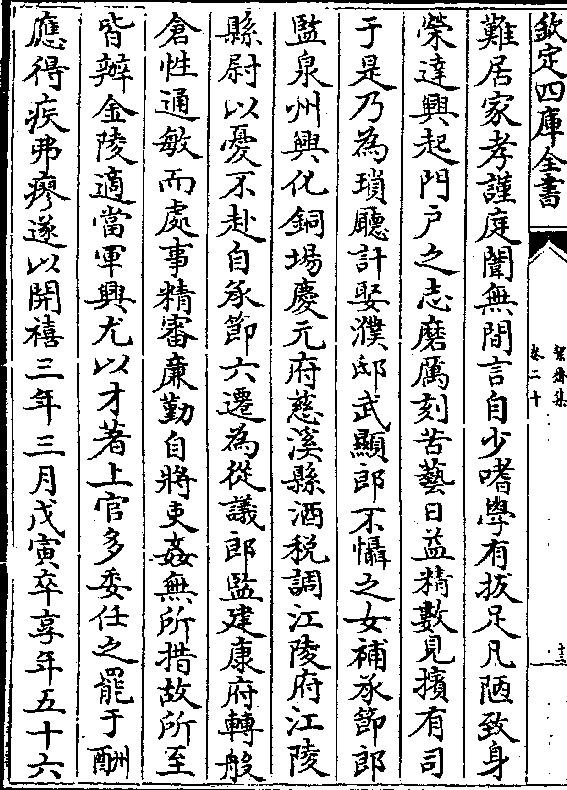 欽定四庫全書
絜齋集
卷二十
十三
難居家孝謹庭闈無間言自少嗜學有拔足凡陋致身
榮達興起門户之志磨厲刻苦藝日益精數見擯有司
于是乃為瑣廳計娶濮邸武顯郎不懾之女補承節郎
監泉州興化銅場慶元府慈溪縣酒税調江陵府江陵
縣尉以憂不赴自承節六遷為從議郎監建康府轉般
倉性通敏而處事精審廉勤自將吏姦無所措故所至
皆辦金陵適當軍興尤以才著上官多委任之罷于酬
應得疾弗瘳遂以開禧三年三月戊寅卒享年五十六